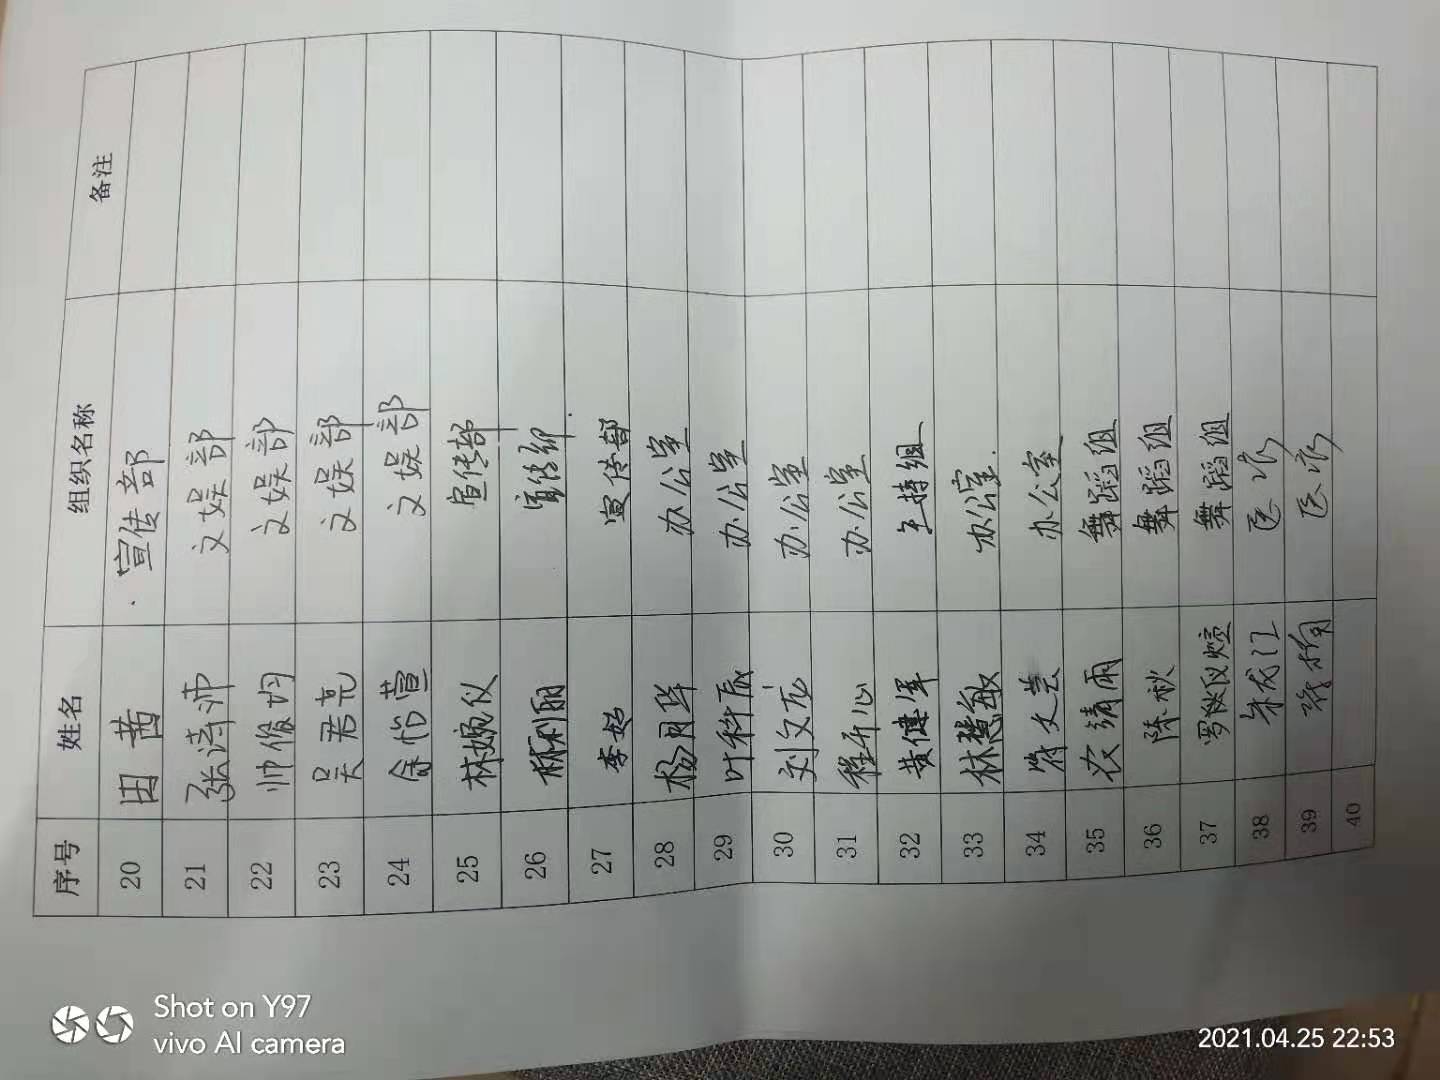 序号 姓名 组织名称 备注
20 田茜 宣传部
21 张诗沛 文娱部
22 帅俊均 文娱部
23 吴君亮 文娱部
24 余怡萱 文娱部
25 林婉仪 宣传部
26 林利丽 宣传部
27 李婷 宣传部
28 杨月华 办公室
29 叶科辰 办公室
30 刘文龙 办公室
31 程开心 办公室
32 黄健军 主持组
33 林慧敏 办公室
34 符文芸 办公室
35 农清雨 舞蹈组
36 陈秋 舞蹈组
37 罗仪煊 舞蹈组
38
39
40
Shot on Y97
vivo AI camera
2021.04.25 22:53